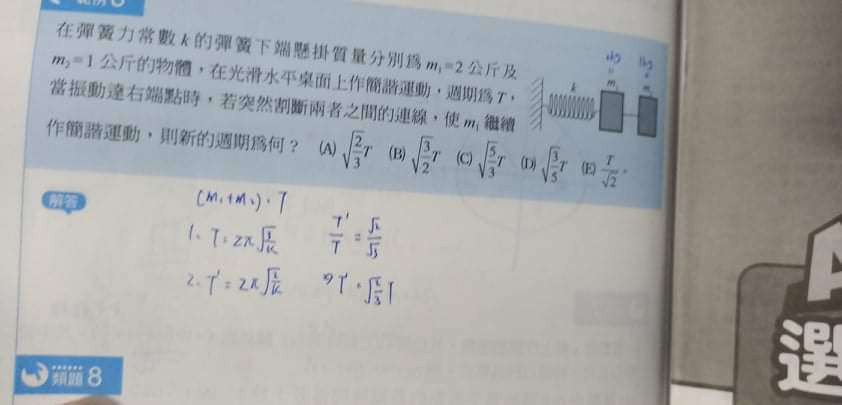 在彈簧力常數 k 的彈簧下端懸掛質量分別為 m₁=2 公斤及
m₂=1 公斤的物體,在光滑水平桌面上作簡諧運動,週期為 T,
當振動達右端點時,若突然割斷兩者之間的連線,使 m₁ 繼續
作簡諧運動,則新的週期為何? (A) √(2/3)T (B) √(3/2)T (C) √(5/3)T (D) √(3/5)T (E) T/√2。
k
解答
(m₁+m₂)、T
1. T=2π√(3/k)
T'/T = √2/√3
2. T'=2π√(2/k)
T'=√(2/3)T
類題 8
選